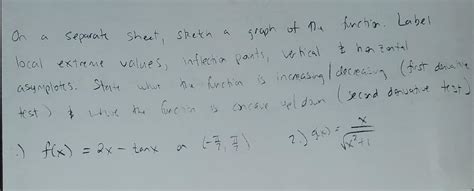 On a separate sheet, sketch a graph of the function. Label
local extreme values, inflection points, vertical & horizontal
asymptotes. State where the function is increasing/decreasing (first derivative
test) & where the function is concave up/down (second derivative test)
1.) f(x) = 2x - tanx on (-π/2, π/2) 2.) g(x) = x/√(x²+1)